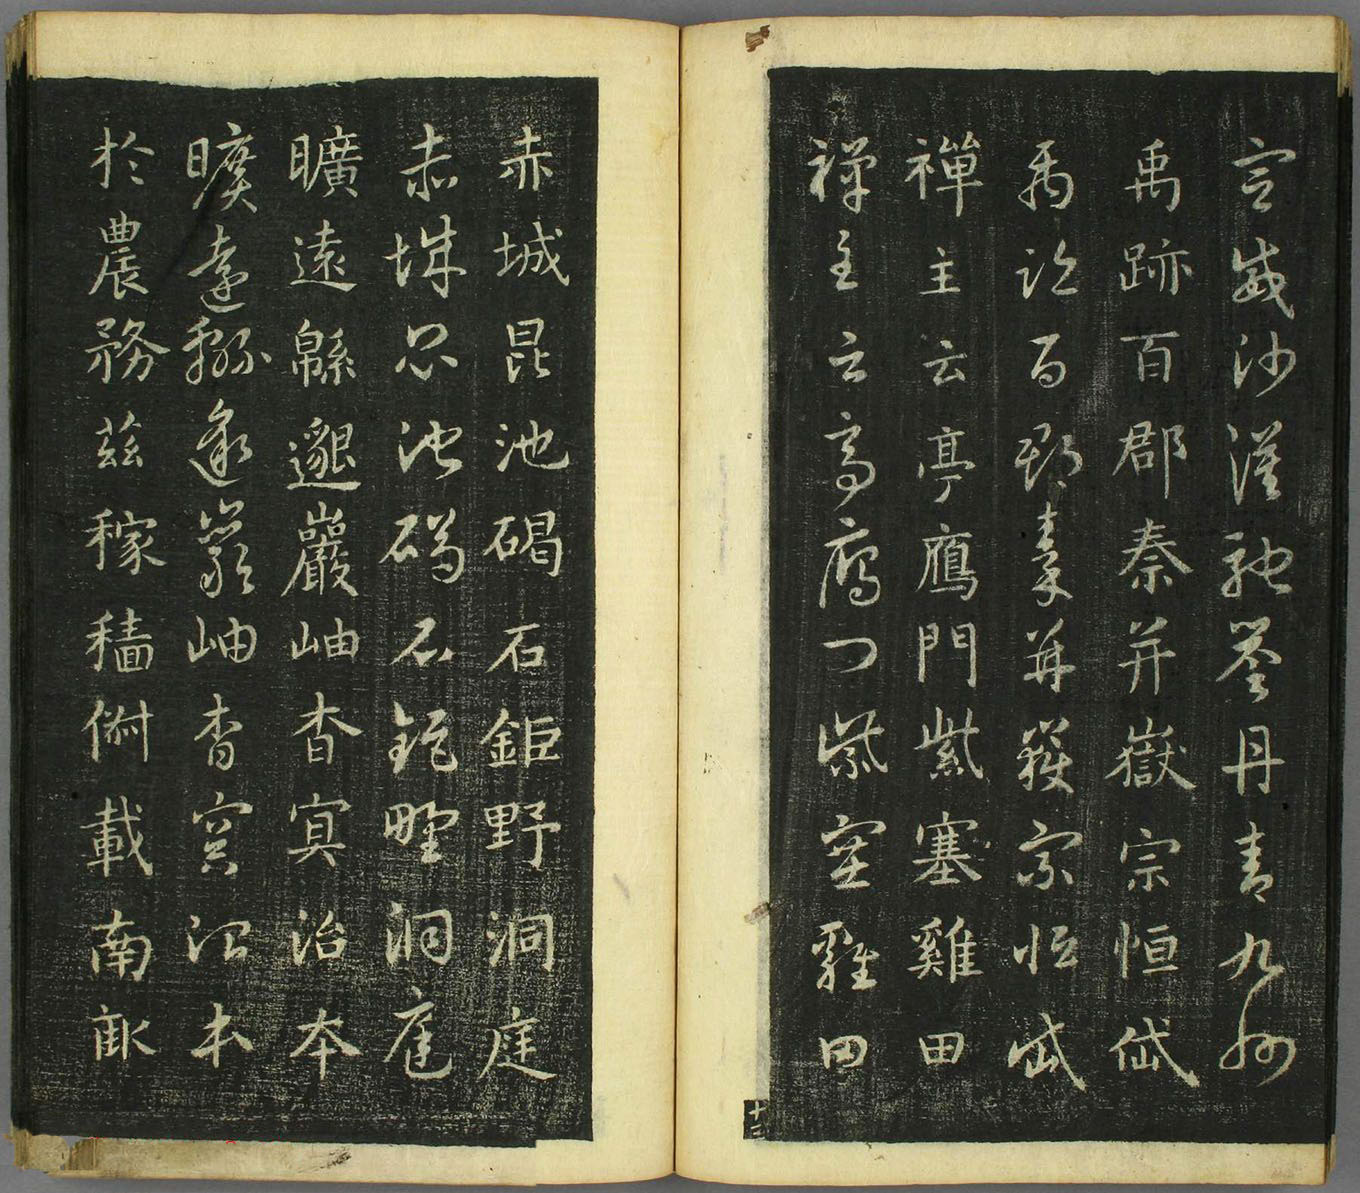 宣威沙漠馳譽丹青九州
禹跡百郡秦并嶽宗恒岱
禹跡百郡秦并嶽宗恒岱
禪主云亭鴈門紫塞雞田
禪主云亭鴈門紫塞雞田
赤城昆池碣石鉅野洞庭
赤城昆池碣石鉅野洞庭
曠遠緜邈巖岫杳冥治本
曠遠緜邈巖岫杳冥治本
於農務茲稼穡俶載南畝
十三